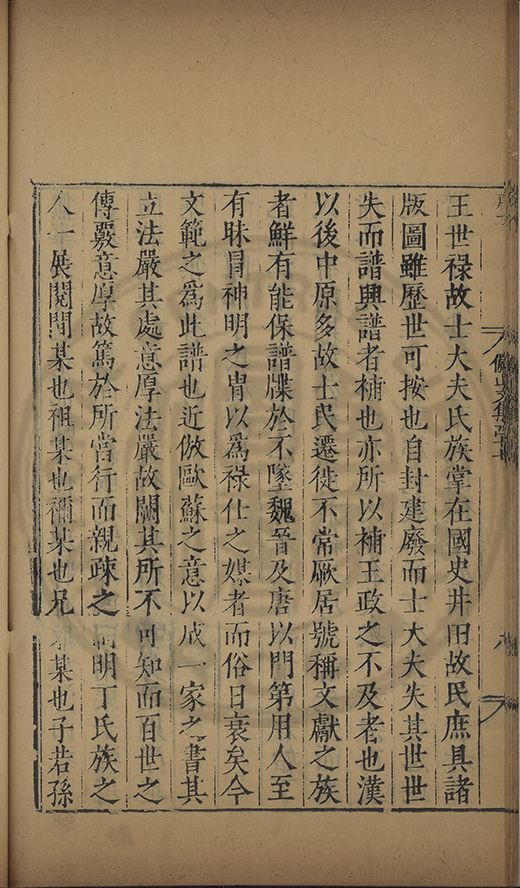 王世祿故士大夫氏族掌在國史井田故民庶具諸
版圖雖歷世可按也自封建廢而士大夫失其世世
失而譜興譜者補也亦所以補王政之不及者也漢
以後中原多故士民遷徙不常厥居號稱文獻之族
者鮮有能保譜牒於不墜魏晉及唐以門第用人至
有昧冒神明之冑以爲祿仕之媒者而俗日衰矣今
文範之爲此譜也近倣歐蘇之意以成一家之書其
立法嚴其處意厚法嚴故闕其所不可知而百世之
傳覈意厚故篤於所當行而親疎之 明丁氏族之
人一展閱間某也祖某也禰某也兄 某也子若孫